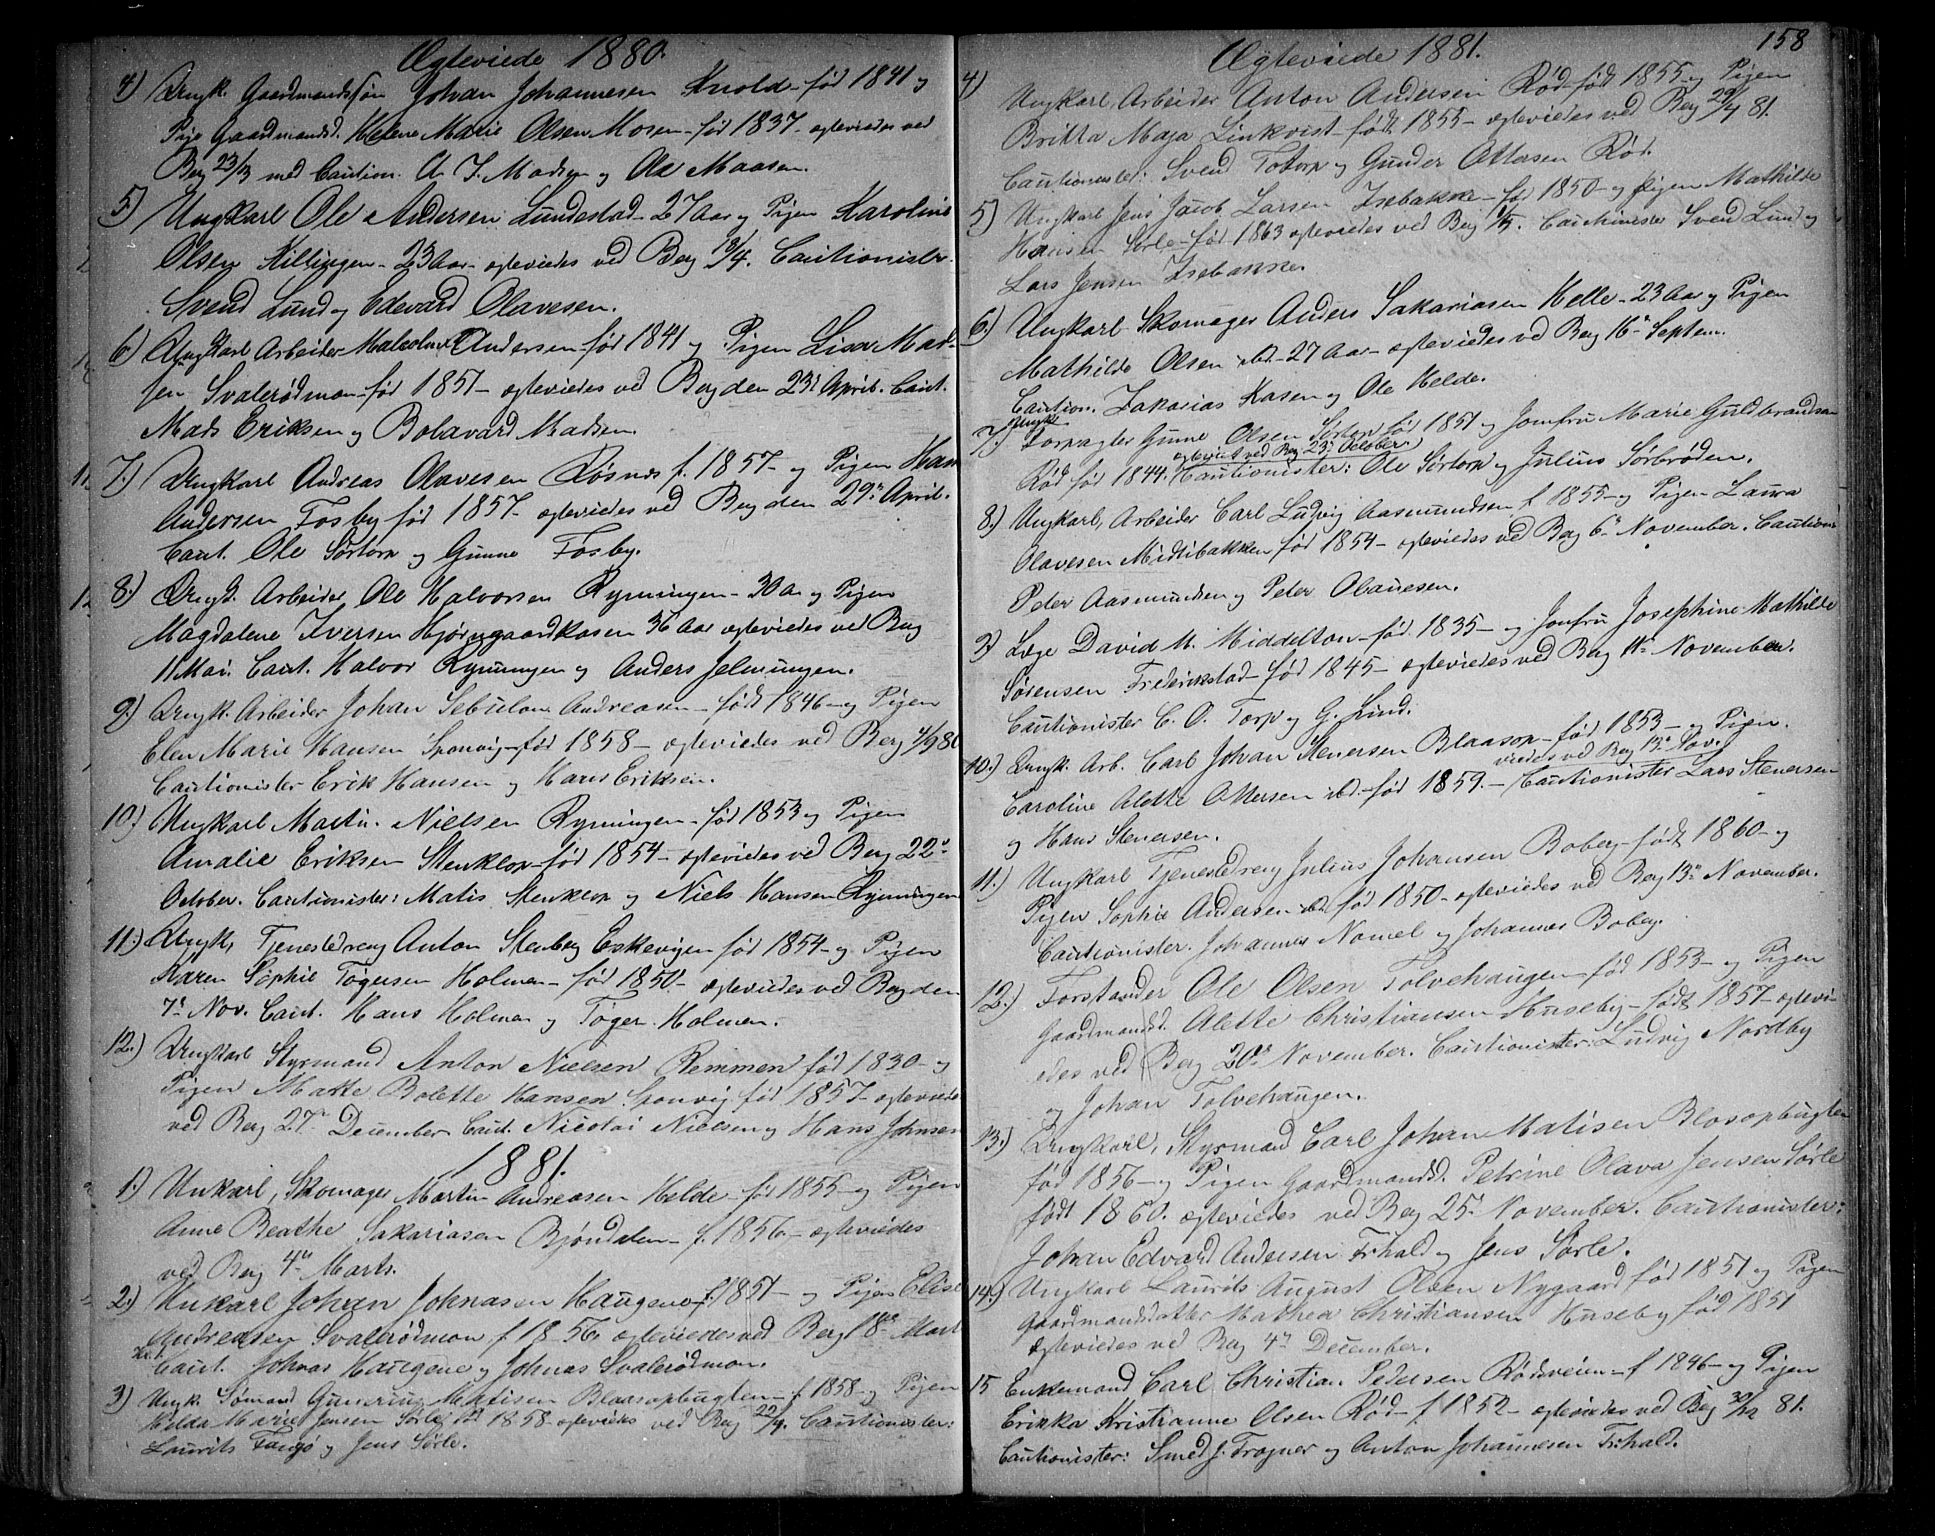 Ægteviede 1880.
4) Ungk. Gaardmandssøn Johan Johannesen Knold - født 1841 og
Pige Gaardmandsd. Helene Marie Olsen Mosen - født 1837 - egteviedes ved
Berg 23/3 med Caution. A. J. Madsen og Ole Maasen.
5) Ungkarl Ole Andersen Lundestad - 27 Aar og Pigen Karoline
Olsen Killingen - 23 Aar - egteviedes ved Berg 13/4. Cautionister
Svend Lund og Edevard Olavesen.
6) Ungkarl Arbeider Andersen født 1841 og Pigen Lisa Mad-
sen Svalerødmon - født 1851 - egteviedes ved Berg den 23d April. Caut.
Mads Eriksen og Bolavard Madsen
7.) Ungkarl Andreas Olavesen Røsnes f. 1857 - og Pigen
Andersen Fosby født 1857 - egteviedes ved Berg den 29n April.
Caut. Ole Sørtorp og Gunne Fosby.
8.) Ungk. Arbeider Ole Halvorsen Rymningen - 30 A og Pigen
Magdalene Iversen Hjørngaardkasen 36 Aar egteviedes ved Berg
11 Mai. Caut. Halvor Rymningen og Anders
9.) Ungk. Arbeider Johan Sebulon Andreasen - født 1846 - og Pigen
Elen Marie Hansen Sponvig - født 1858 - egteviedes ved Berg 4/9 80
Cautionister Erik Hansen og Hans Eriksen.
10.) Ungkarl Martin Nielsen Rymningen - født 1853 og Pigen
Amalie Eriksen Stenklop - født 1854 - egteviedes ved Berg 22d
October. Cautionister: Matis Stenklop og Niels Hansen Rymningen
11.) Ungk. Tjenestdreng Anton Stenberg Eskevigen født 1854 - og Pigen
Karen Sophie Tøgersen Holmen - født 1850 - egteviedes ved Berg den
7d Nov. Caut. Hans Holmen og Tøger Holmen.
12.) Ungkarl Styrmand Anton Nielsen Remmen født 1830 - og
Pigen Matte Bolette Hansen Sponvig født 1857 - egteviede
ved Berg 27n December Caut. Nicolai Nielsen og Hans Johnsen
1881.
1.) Unkarl, Skomager Martin Andreasen Helde - født 1855 - og Pigen
Anne Beathe Sakariasen Bjøndalen - f. 1856 - egteviedes
ved Berg 4n Marts.
2.) Unkarl Johan Johnasen Haugene - f 1851 - og Pigen Elise
Andreasen Svalerødmon f 1856 egteviedes ved Berg 18n Mart
Caut. Johnas Haugene og Johnas Svalerødmon.
3) Ungk Sømand Matisen Blaasopbugten - f 1858 - og Pigen
Helda Marie Jensen Sørle født 1858 - egteviedes ved Berg 22/4. Cautionister:
Laurits Tangø og Jens Sørle.
Ægteviede 1881. 158
4) Ungkarl, Arbeider Anton Andersen Rød - født 1855 - og Pigen
Britta Maja Linkvist - født 1855 - egteviedes ved Berg 29/4 81.
Cautionister: Svend Totorp og Gunder Ottersen Rød.
5) Ungkarl Jens Jacob Larsen Isebakke - før 1850 - og Pigen Mathilde
Hansen Sørle - født 1863 egteviedes ved Berg Cautionister Svend Lund og
Lars Jensen Isebakke
6.) Ungkarl Skomager Anders Sakariasen Helle - 23 Aar og Pigen
Mathilde Olsen ibd - 27 Aar - egteviedes ved Berg 16n Septem.
Caution. Zakarias Kasen og Ole Helde.
7.) Ungk. Forpagter Gunne Olsen Sørtorp før 1851 og Jomfru Marie Guldbrandsen
egteviet ved Berg 23d October.
Rød før 1844. Cautionister: Ole Sørtorp og Julius Sørbrøden.
8.) Ungkarl, Arbeider Carl Ludvig Aasmundsen f 1855 - og Pigen Laura
Olavesen Midtibakken før 1854 - egteviedes ved Berg 6n November. Caution
Peder Aasmundsen og Peter Olavesen.
9) Læge David M. Middelton - født 1835 - og Jomfru Josephine Mathilde
Sørensen Frederikstad - født 1845 - egteviedes ved Berg 11n November.
Cautionister C. O. Torp og G. Lund.
10.) Ungk. Arb. Carl Johan Stenersen Blaasop - født 1853 - og Pigen.
viedes ved Berg 13n Nov.
Caroline Alette Ottersen ibd. - født 1859. - Cautionister Lars Stenersen
og Hans Stenersen.
11.) Ungkarl Tjenestdreng Julius Johansen Boberg - født 1860 - og
Pigen Sophie Andersen ibd før 1850 - egteviedes ved Berg 13n November.
Cautionister. Johannes Nomel og Johannes Boberg.
12.) Forstander Ole Olsen Tolvehaugen - født 1853 - og Pigen
Gaardmandsd. Alette Christiansen Huseby - født 1857 - egtevi-
edes ved Berg 20n November. Cautionister: Ludvig Nordby
og Johan Tolvehaugen.
13.) Ungkarl, Styrmand Carl Johan Matisen Blosopbugten
født 1856 - og Pigen Gaardmandsd. Petrine Olava Jensen Sørle
født 1860. egteviedes ved Berg 25n November. Cautionister:
Johan Edvard Andersen Frhald og Jens Sørle.
14.) Ungkarl Laurits August Olsen Nygaard født 1851 og Pigen
Gaardmandsdatter Mathea Christiansen Huseby født 1851
Egteviedes ved Berg 4n December.
15 Enkemand Carl Christian Pedersen Rødsveien - f 1846 - og Pigen
Erikka Kristianne Olsen Rød - f. 1852 - egteviedes ved Berg 30/12 81.
Cautionister: Smed J. Trogner og Anton Johannesen Frhald.